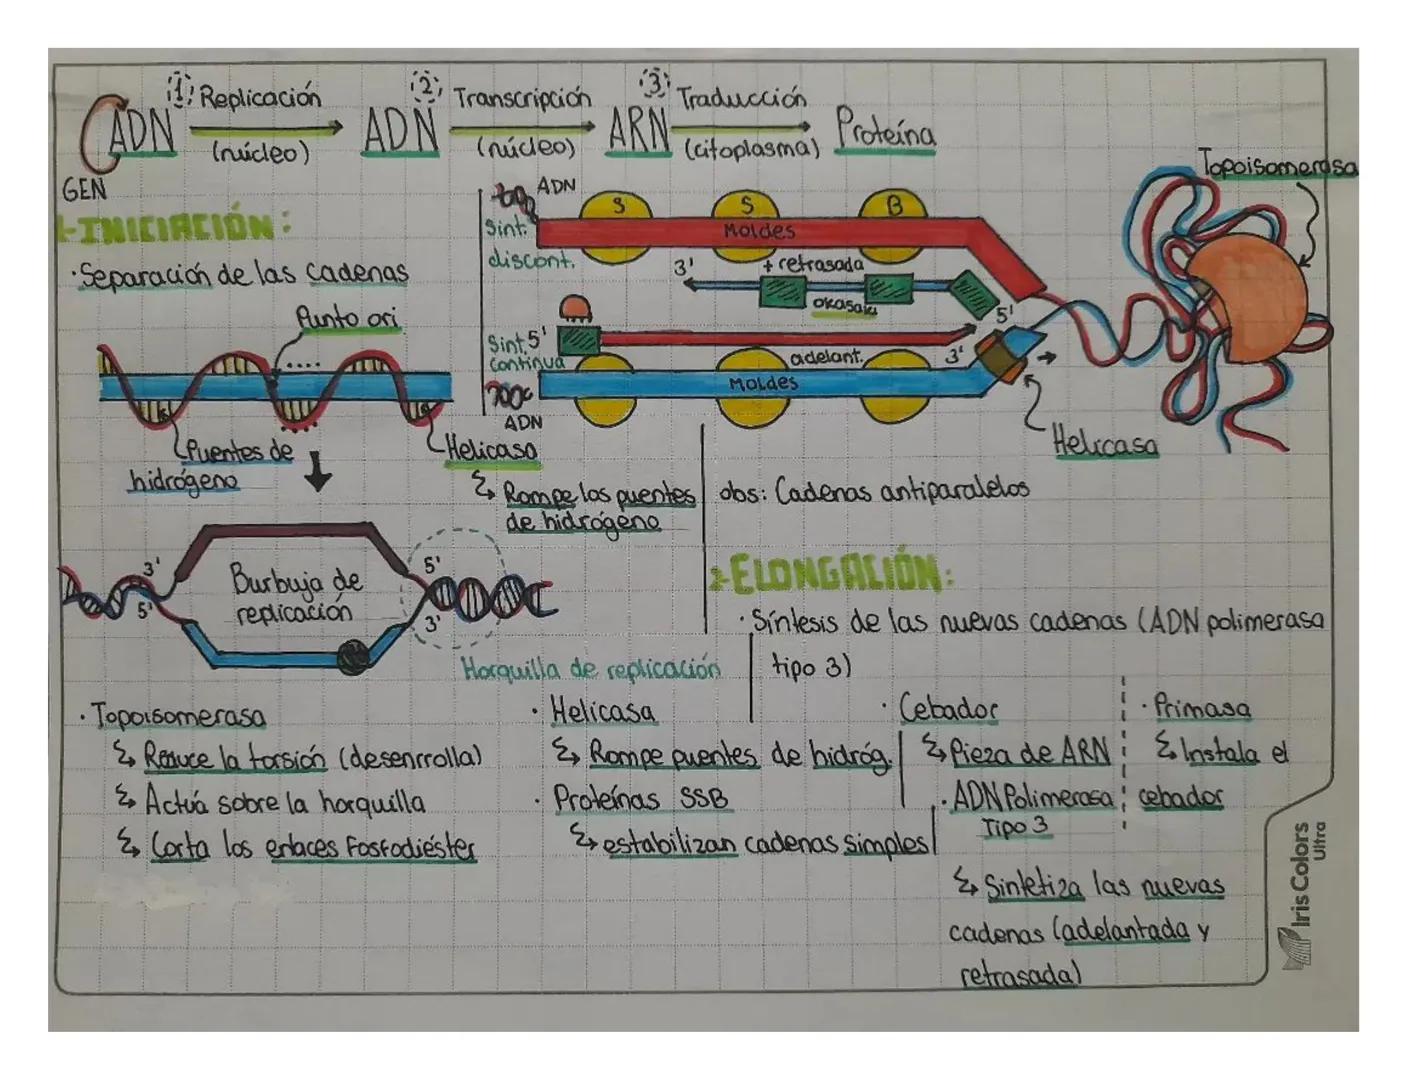 1 Replicación 2 Transcripción 3 Traducción
ADN ADN ARN Proteína
(núcleo) (núcleo) (citoplasma)
GEN
1-INICIACIÓN:
·Separación de las cadenas
Punto ori
Puentes de
hidrógeno
Helicasa
Rompe los puentes
de hidrógeno
Burbuja de
replicación
3'
5'
5'
3'
Horquilla de replicación
ADN
Sint.
discont.
S S B
Moldes
3' + retrasada
okasaki
5'
Sint. 5'
continua
adelant. 3'
Moldes
ADN
Topoisomerasa
Helicasa
obs: Cadenas antiparalelas
2-ELONGACIÓN:
·Síntesis de las nuevas cadenas (ADN polimerasa
tipo 3)
· Topoisomerasa
Reduce la torsión (desenrrolla)
Actúa sobre la horquilla
Corta los enlaces Fosfodiéster
· Helicasa
Rompe puentes de hidróg.
· Proteínas SSB
estabilizan cadenas simples
· Cebador
Pieza de ARN
· ADN Polimerasa
Tipo 3
Sintetiza las nuevas
cadenas (adelantada y
retrasada)
· Primasa
Instala el
cebador
Iris Colors
Ultra